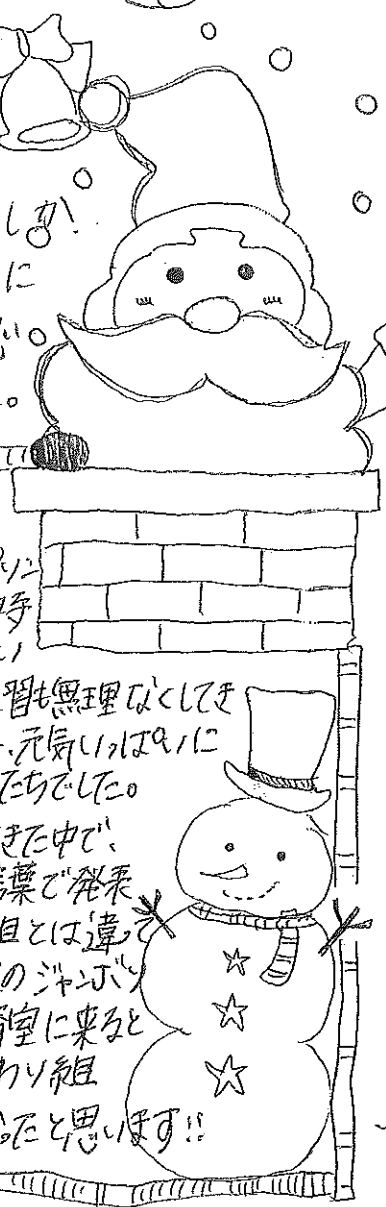 しか!
に
い
。
習も無理なくしてき
、元気いっぱいに
たちでした。
きた中で、
葉で発表
目とは違って
のジャンボリ
育室に来ると
わり組
ったと思います!!